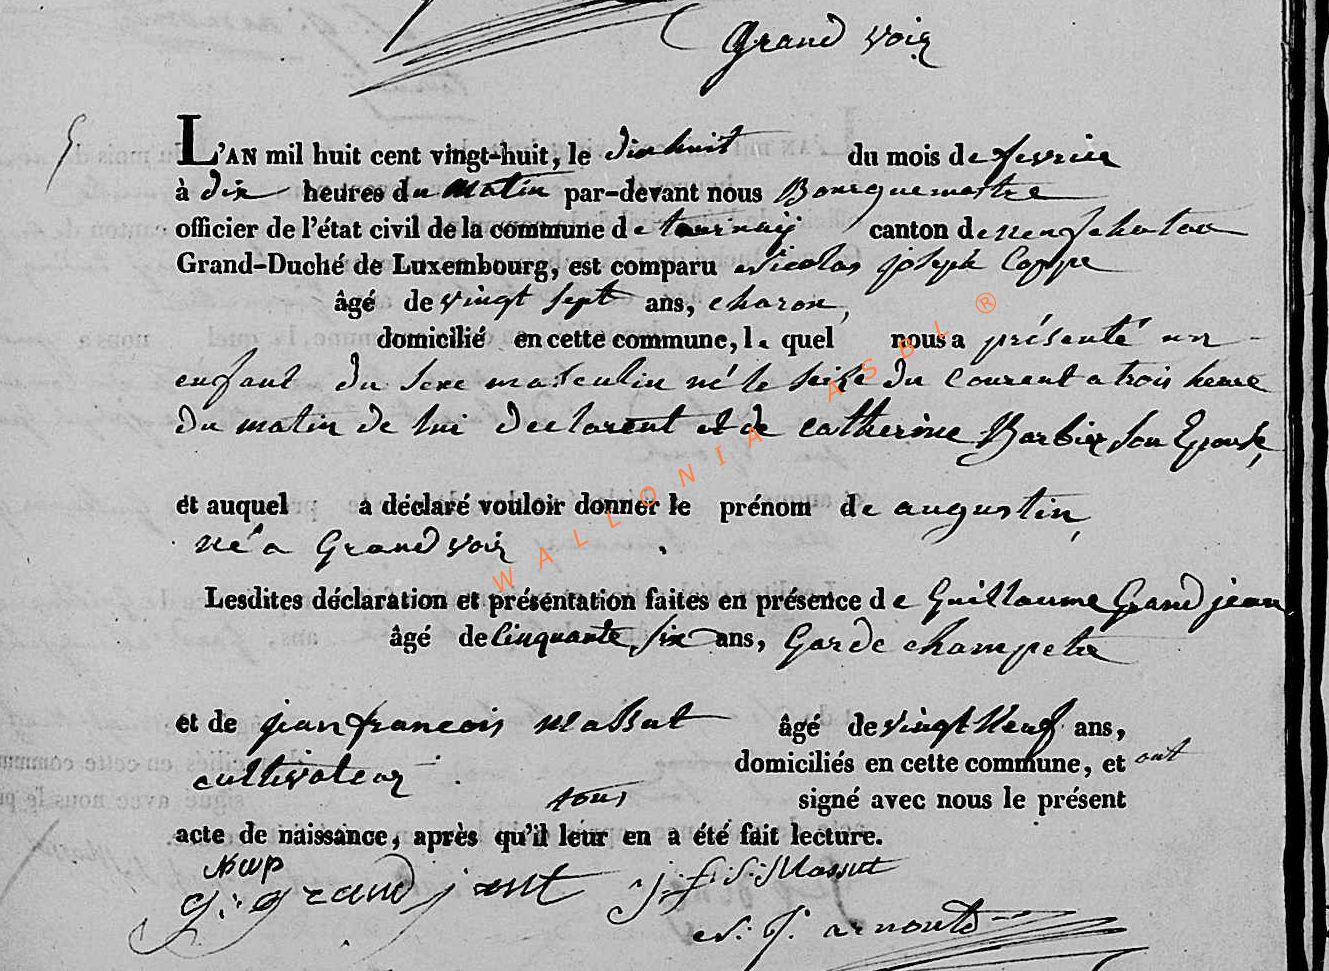 Grand voir
L'AN mil huit cent vingt-huit, le dixhuit du mois de fevrier
à dix heures du matin par-devant nous Bourguemestre
officier de l'état civil de la commune de tournay canton de neufchatau
Grand-Duché de Luxembourg, est comparu Nicolas joseph Coppe
âgé de vingt sept ans, charon,
domicilié en cette commune, le quel nous a présenté un
enfant du sexe masculin né le seize du Courent a trois heure
du matin de lui declarent et de catherine Barbier son Epouse,
et auquel a déclaré vouloir donner le prénom de augustin,
né a Grand voir
Lesdites déclaration et présentation faites en présence de Guillaume Grand jean
âgé de Cinquante six ans, Garde champetre
et de jean francois Massut âgé de vingt Neuf ans,
cultivateur domiciliés en cette commune, et ont
tous signé avec nous le présent
acte de naissance, après qu'il leur en a été fait lecture.
g: grand j j: f: S: Massut
N. J. arnould
WALLONIA ASBL ®